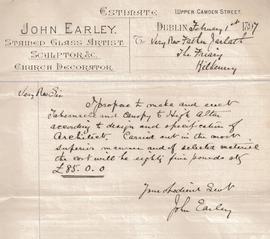 Estimate
Upper Camden Street.
John Earley,
Stained Glass Artist,
Sculptor &c.
Church Decorator.
Dublin February 1st 1897
To Very Rev Father
The Friary
Kilkenny
Very Rev Sir
I propose to make and erect
Tabernacle and Canopy to High Altar
according to design and specification of
Architect. Carried out in the most
superior manner and of selected material
the cost will be eighty five pounds stg
£85.0.0
Your obedient Servt
John Earley